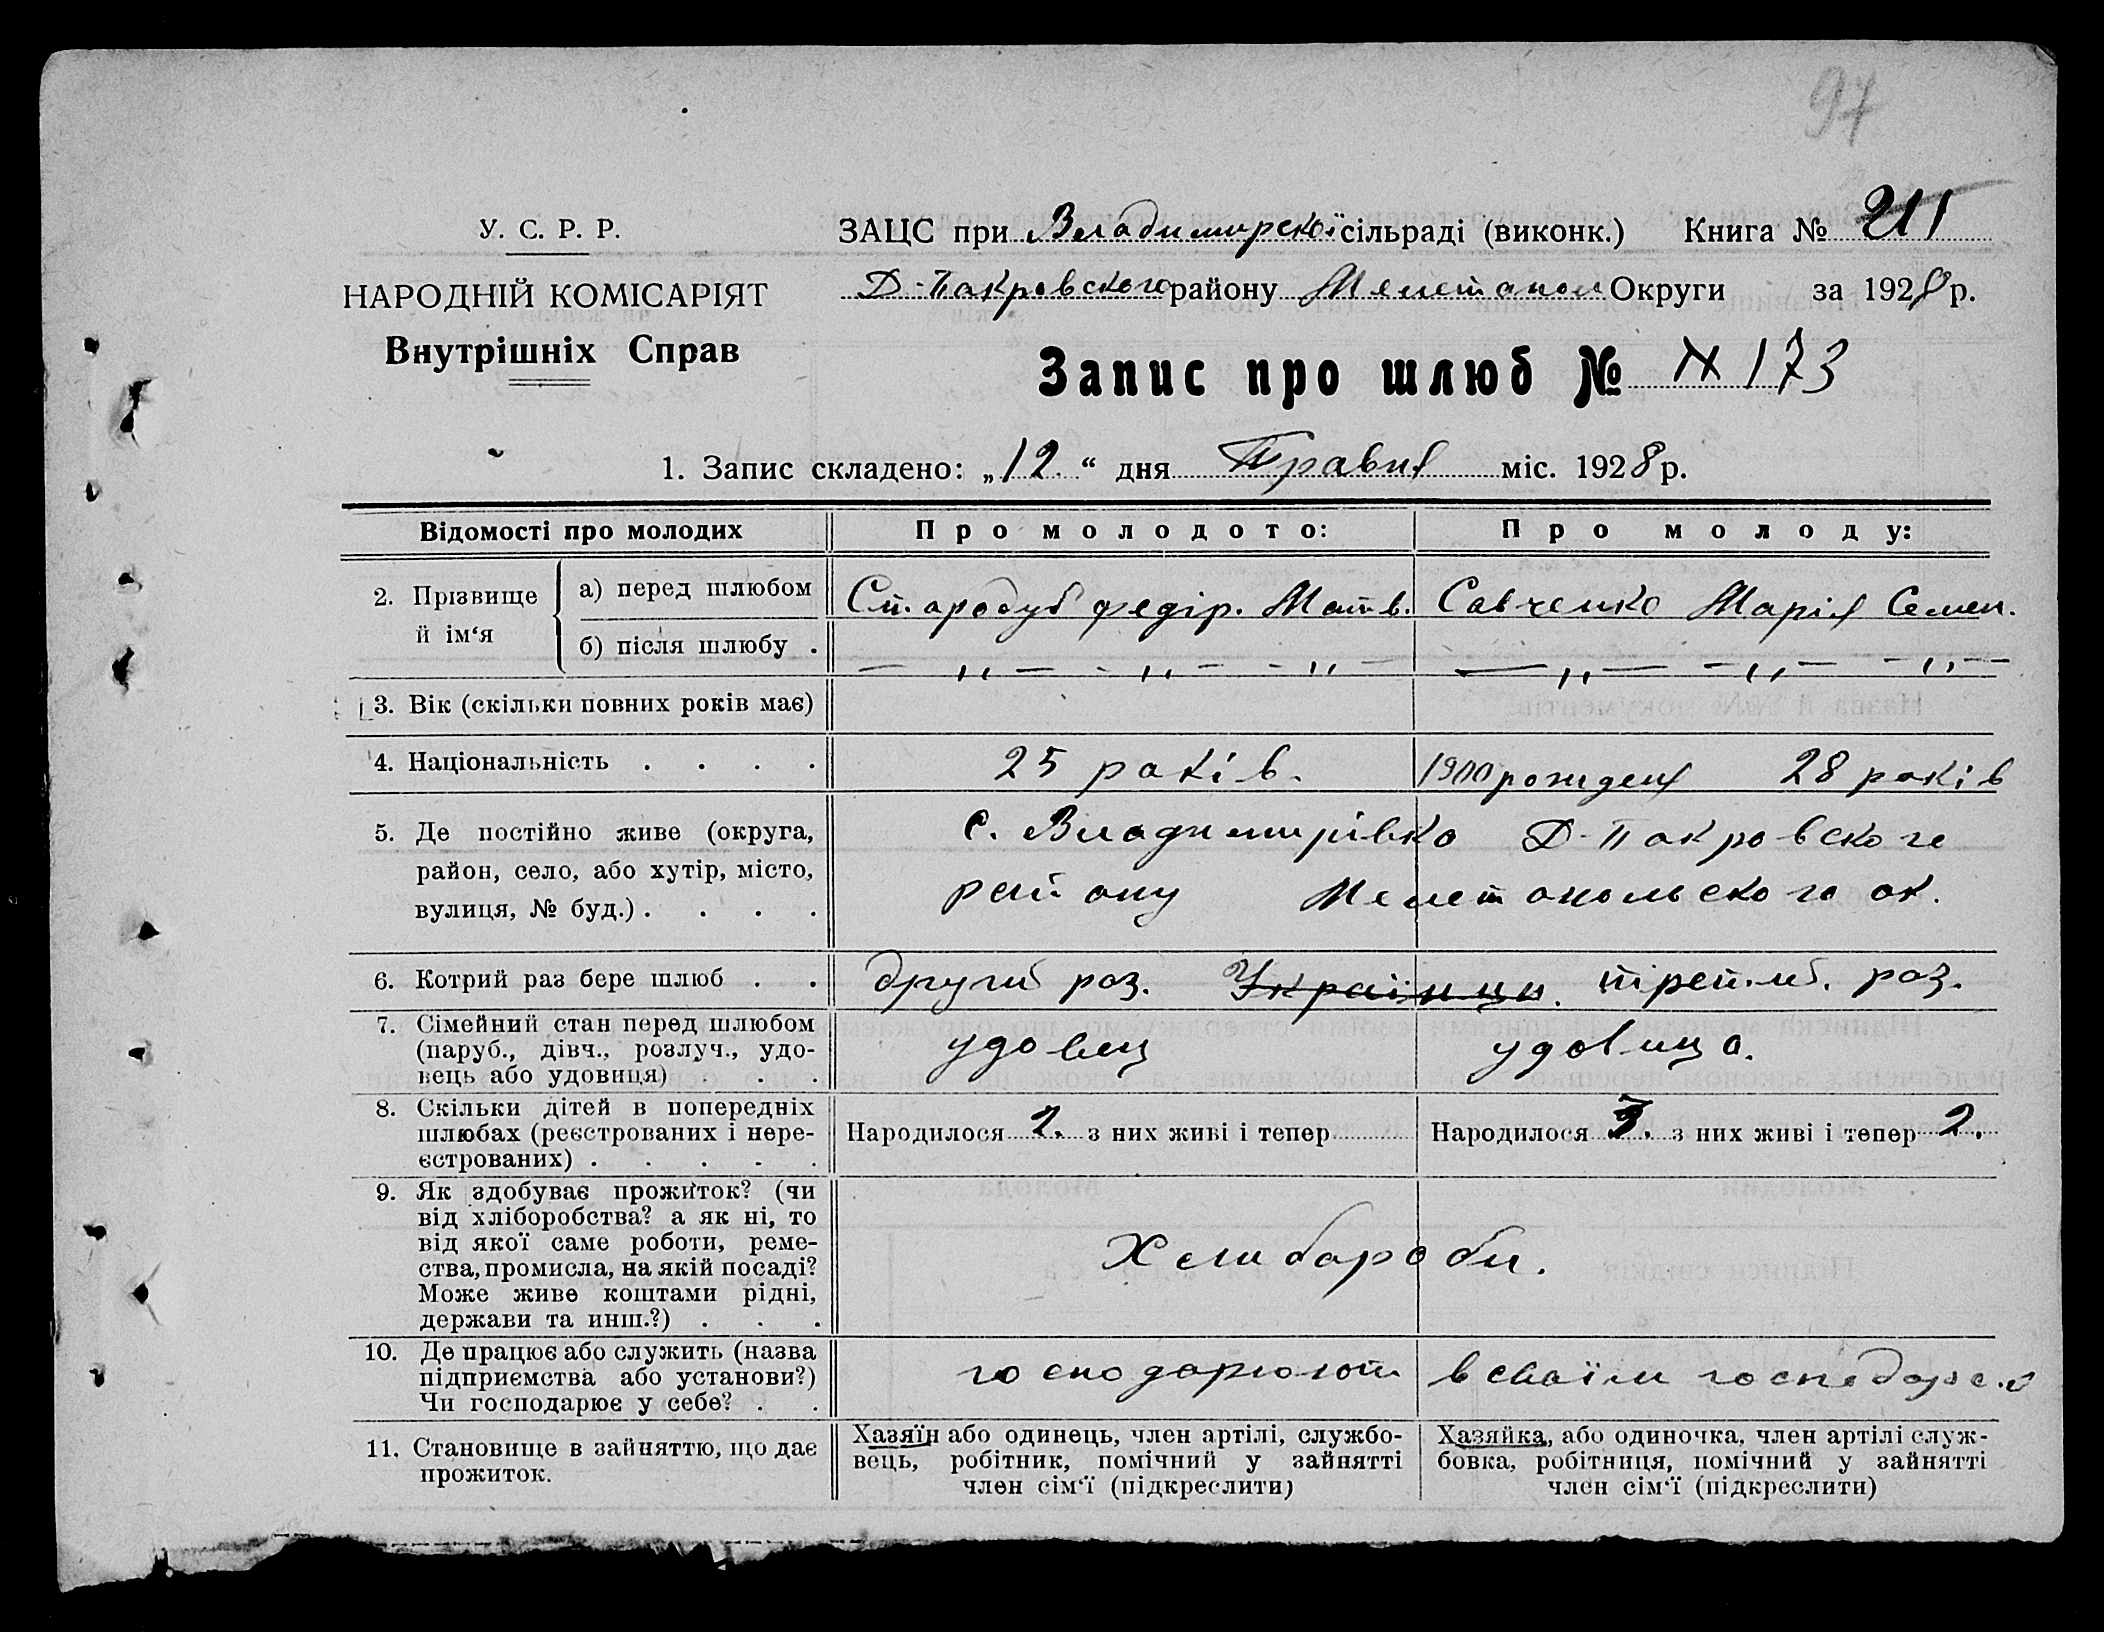 97
У. С. Р. Р.
НАРОДНІЙ КОМІСАРІЯТ
Внутрішніх Справ
ЗАЦС при Владимирскої сільраді (виконк.) Книга №
Д-Пакровского району Мелетапол Округи за 1928 р.
Запис про шлюб № 173
1. Запис складено: „12“ дня Травня міс. 1928 р.
Відомості про молодих Про молодого: Про молоду:
2. Прізвище й ім‘я
а) перед шлюбом Стародуб Федір. Матв. Савченко Марія Семен.
б) після шлюбу . — „ — - „ - - „ — „ — - „ — - „ —
3. Вік (скільки повних років має)
4. Національність . . . . 25 раків. 1900 рождения 28 раків
5. Де постійно живе (округа, район, село, або хутір, місто, вулиця, № буд.) . . . .
с. Владимирівка Д-Пакровского
району Мелетапольского ок.
6. Котрий раз бере шлюб . . другий раз. Українци. третий. раз.
7. Сімейний стан перед шлюбом (паруб., дівч., розлуч., удовець або удовиця) . . удовец удовица.
8. Скільки дітей в попередніх шлюбах (реєстрованих і нереєстрованих) . . . . .
Народилося 2. з них живі і тепер
Народилося 3. з них живі і тепер 2.
9. Як здобуває прожиток? (чи
від хліборобства? а як ні, то
від якої саме роботи, реме-
ства, промисла, на якій посаді?
Може живе коштами рідні,
держави та инш.?) . . .
Хлибароби.
10. Де працює або служить (назва
підприємства або установи?)
Чи господарює у себе? . .
господарюют в своїм
11. Становище в зайняттю, що дає
прожиток.
Хазяїн або одинець, член артілі, службо-
вець, робітник, помічний у зайнятті
член сім‘ї (підкреслити)
Хазяйка, або одиночка, член артілі служ-
бовка, робітниця, помічний у зайнятті
член сім‘ї (підкреслити)